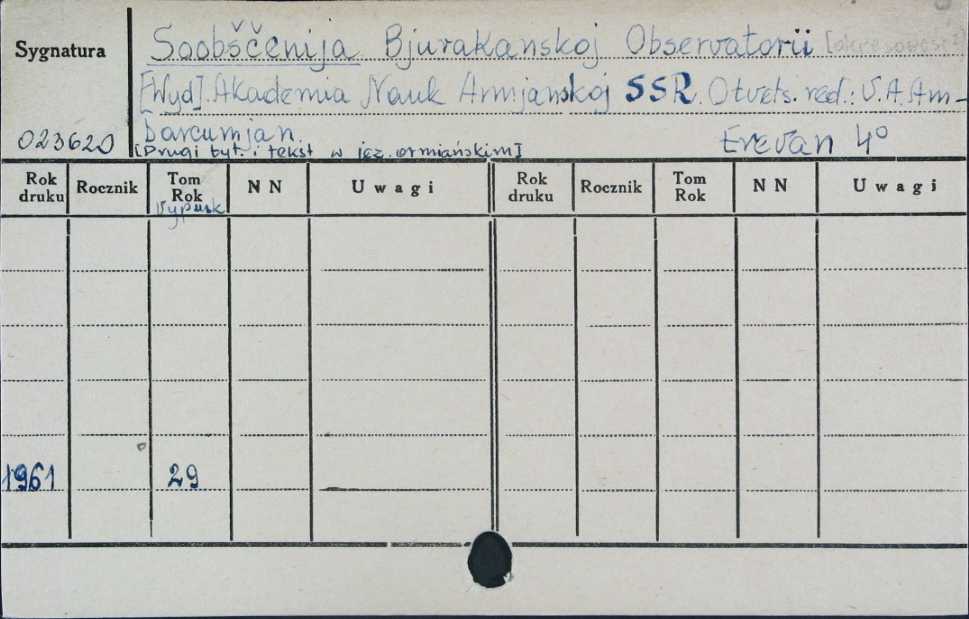 Sygnatura
Soobščenija Bjurakanskoj Observatorii [okresowość]
[Wyd]. Akademia Nauk Armjanskoj SSR. Otvets. red.: V. A. Am-
023620 barcumjan. Erevan 4°
[Drugi tyt. i tekst w jęz. ormiańskim]
Rok druku Rocznik Tom Rok Vypusk NN Uwagi Rok druku Rocznik Tom Rok NN Uwagi
1961 29